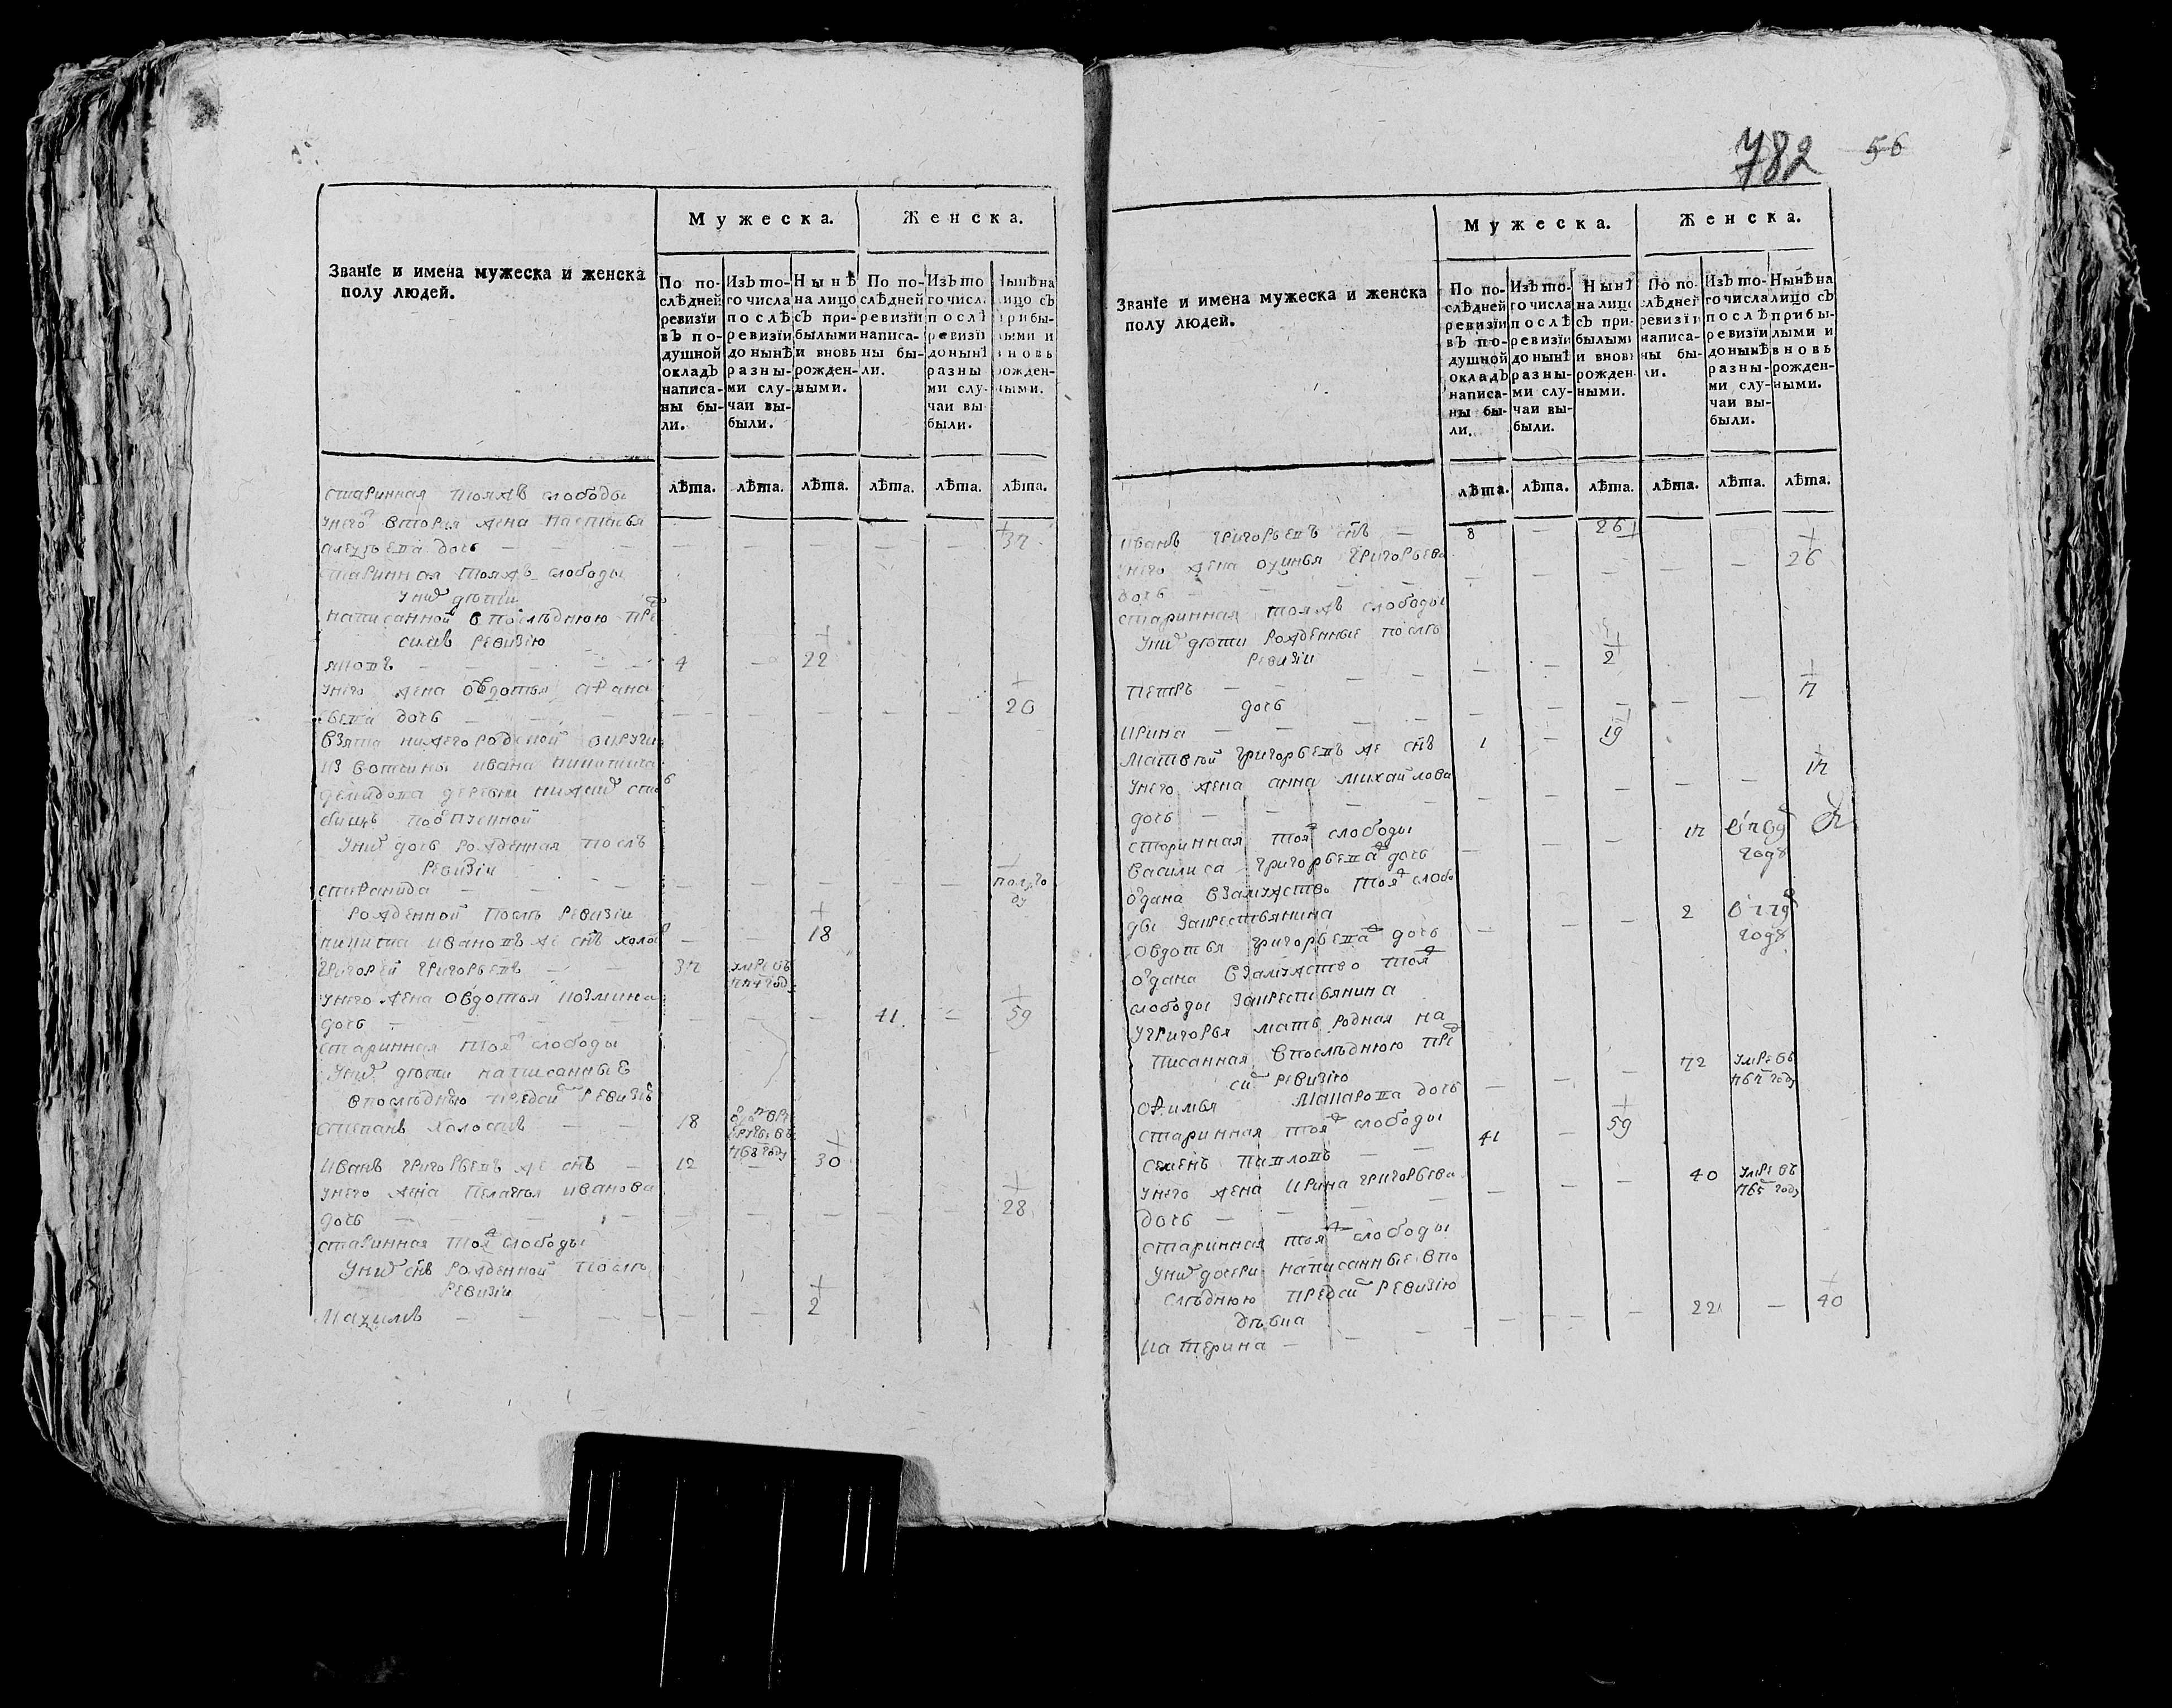 782 56
Мужеска. Женска.
Званїе и имена мужеска и женска
полу людей.
По по-
слѣдней
ревизїи
въ по-
душной
окладъ
написа-
ны бы-
ли.
Изъ то-
го числа
послѣ
ревизїи
до нынѣ
разны-
ми слу-
чаи вы-
были.
Нынѣ
на лицо
съ при-
былыми
и вновь
рожден-
ными.
По по-
слѣдней
ревизїи
написа-
ны бы-
ли.
Изъ то
го числ.
послѣ
ревизїи
до нынѣ
разны
ми слу-
чаи вы-
были.
Нынѣ на
лицо съ
прибы-
лыми и
вновь
рожден-
ными.
лѣта. лѣта. лѣта. лѣта. лѣта. лѣта.
старинная тояжъ слободы
унего вторая жена настасья
дочь — — — — — — — 37
старинная тояжъ слободы
униⷯ дѣти
написанной впослѣднюю преⷣ
симъ ревизію
4 — 22
унего жена овдотья
дочь — — — — — — 20
взята нижегородской округи
из вотчины ивана никитича
демидова деревни
униⷯ дочь рожденная послѣ
ревизіи
степанида — — — — — полуго
ду
рожденной послѣ ревизіи
никита ивановъ же снъ холоⷭ — — 18
григорей григорьевъ — — 37 умре въ
774 году
унего жена овдотья козмина
дочь — — — — 41 — 59
старинная тояⷤ слободы
униⷯ дѣти написанные
впослѣднюю предсиⷨ ревизію
степанъ холостъ — — 18
768 году
иванъ григорьевъ же снъ — 12 — 30
унего жена пелагея иванова
дочь — — — — — — 28
старинная тояⷤ слободы
униⷯ снъ рожденной послѣ
ревизіи
— — — — 2
Мужеска. Женска.
Званїе и имена мужеска и женска
полу людей.
По по-
слѣдней
ревизїи
въ по-
душной
окладъ
написа-
ны бы-
ли.
Изъ то-
го числа
послѣ
ревизїи
до нынѣ
разны-
ми слу-
чаи вы-
были.
Нынѣ
на лицо
съ при-
былыми
и вновь
рожден-
ными.
По по-
слѣдней
ревизїи
написа-
ны бы-
ли.
Изъ то-
го числа
послѣ
ревизїи
до нынѣ
разны-
ми слу-
чаи вы-
были.
Нынѣ на
лицо съ
прибы-
лыми и
вновь
рожден-
ными.
лѣта. лѣта. лѣта. лѣта. лѣта. лѣта.
иванъ григорьевъ снъ — 8 — 26
унего жена григорьева
дочь — — — — — — 26
старинная тояжъ слободы
униⷯ дѣти рожденные послѣ
ревизіи
петръ — — — — 2
дочь
ирина — — — — — — 7
матвей григорьевъ же снъ 1 — 19
унего жена анна михайлова
дочь — — — — — — 17
старинная тояⷤ слободы
василиса григорьева дочь — — — 17
году
оⷮдана взамужство тояⷤ слобо
ды закрестьянина
овдотья григорьева дочь — — — 2
году
оⷮдана взамужство тояⷤ
слободы закрестьянина
угригорья мать родная на
писанная впослѣднюю преⷣ
сиⷨ ревизію
офимья макарова дочь — — — 72 умре въ
767 году
старинная тояⷤ слободы
семенъ павловъ — — 41 — 59
унего жена ирина григорьева
дочь — — — — — 40 умре въ
765 году
старинная тояⷤ слободы
униⷯ дочери написанные впо
слѣднюю предсиⷨ ревизію
дѣвка
катерина — — — — 22 — 40